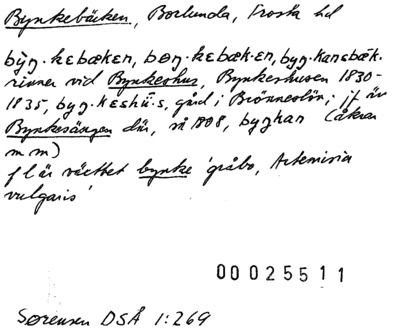 Bynkebäcken, Borlunda, Frosta hd
bỳn·kɛbækɛn, bøŋ·kɛbæk·ɛn, byŋ·kanɛbæk.
rinner vid Bynkeshus, Bynkeshusen 1830-
1835, byŋ·kɛshü·s, gård i Brönneslöv; jf äv
Bynkesängen där, så 1808, (åkrar
m m)
fl är växtet bynke 'gråbo, Artemisia
vulgaris'
00025511
Sørensen DSÅ 1:269